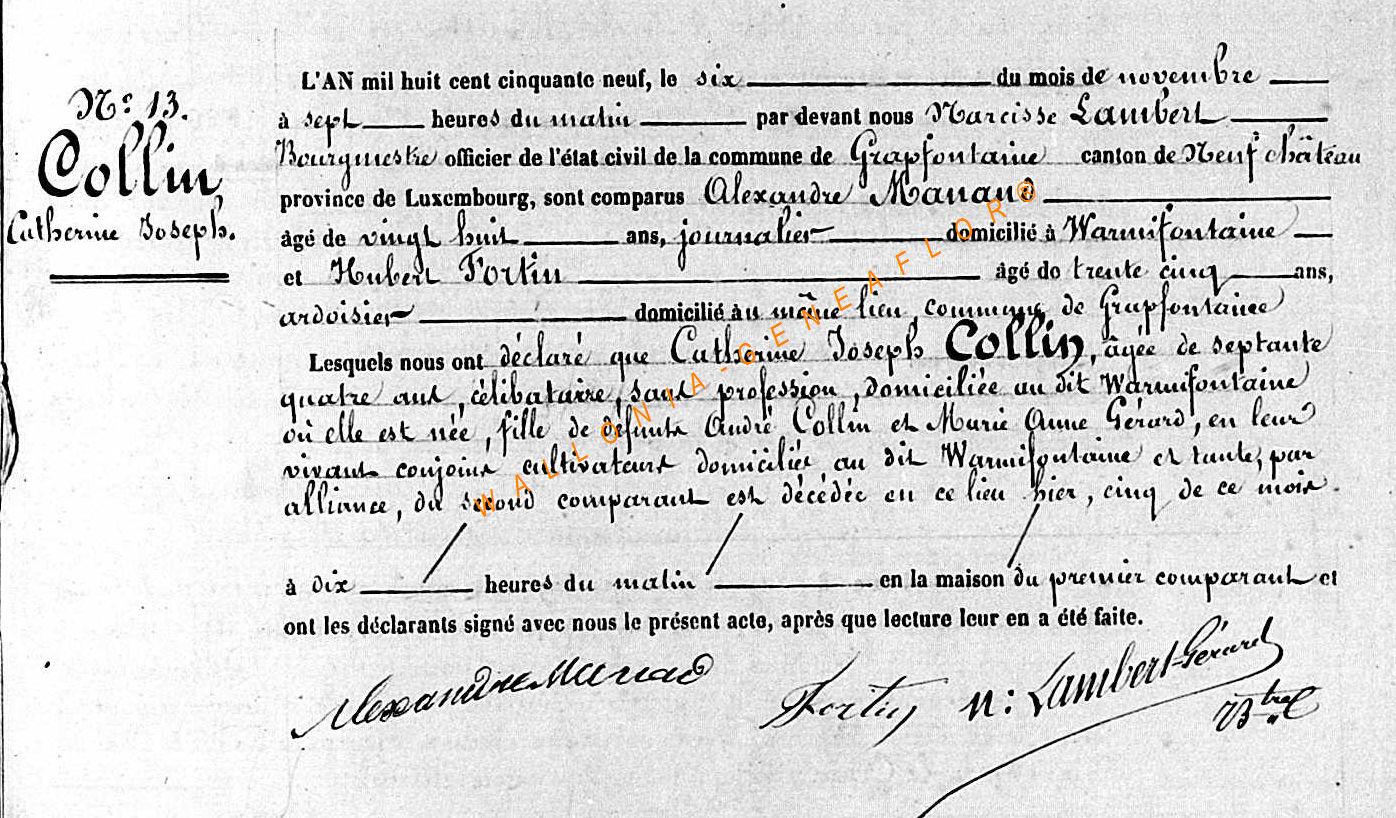 N.º 13.
Collin
Catherine Joseph.
L'AN mil huit cent cinquante neuf, le six du mois de novembre
à sept heures du matin par devant nous Narcisse Lambert
Bourgmestre officier de l'état civil de la commune de Grapfontaine canton de Neufchâteau
province de Luxembourg, sont comparus Alexandre Manand
âgé de vingt huit ans, journalier domicilié à Warmifontaine
et Hubert Fortin âgé de trente cinq ans,
ardoisier domicilié au même lieu, commune de Grapfontaine
Lesquels nous ont déclaré que Catherine Joseph Collin, âgée de septante
quatre ans, célibataire, sans profession, domiciliée au dit Warmifontaine
où elle est née, fille de défunts André Collin et Marie Anne Gérard, en leur
vivant conjoins cultivateurs domiciliés au dit Warmifontaine et tante, par
alliance, du second comparant est décédée en ce lieu hier, cinq de ce mois.
à dix heures du matin en la maison du premier comparant et
ont les déclarants signé avec nous le présent acte, après que lecture leur en a été faite.
Alexandre Manand
Fortin
N: Lambert-Gérard
Btre
WALLONIA-GENEAFLOR®